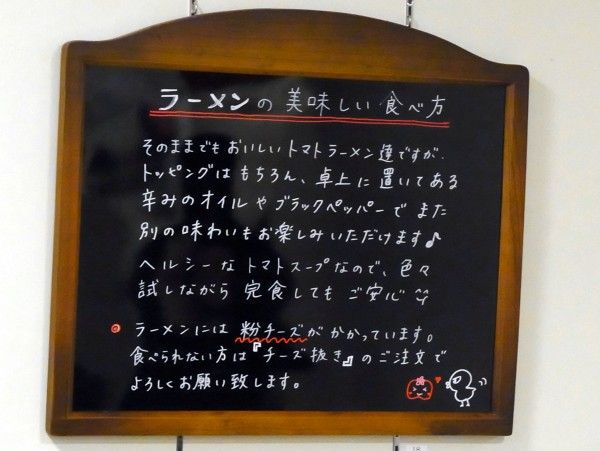 ラーメンの美味しい食べ方
そのままでもおいしいトマトラーメン達ですが、
トッピングはもちろん、卓上に置いてある
辛みのオイルやブラックペッパーでまた
別の味わいもお楽しみいただけます♪
ヘルシーなトマトスープなので、色々
試しながら完食してもご安心
◎ ラーメンには粉チーズがかかっています。
食べられない方は『チーズ抜き』のご注文で
よろしくお願い致します。
18